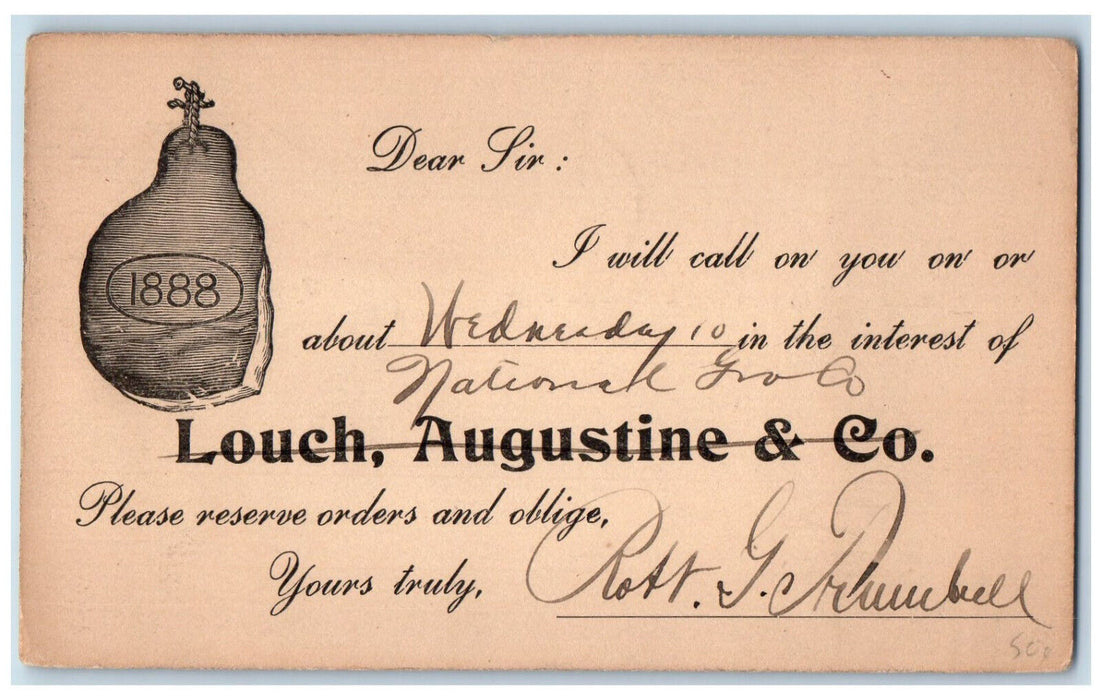 1888
Dear Sir:
I will call on you on or
about Wednesday 10 in the interest of
National Gro Co
Louch, Augustine & Co.
Please reserve orders and oblige,
Yours truly, Robt. G. Trumbull
50